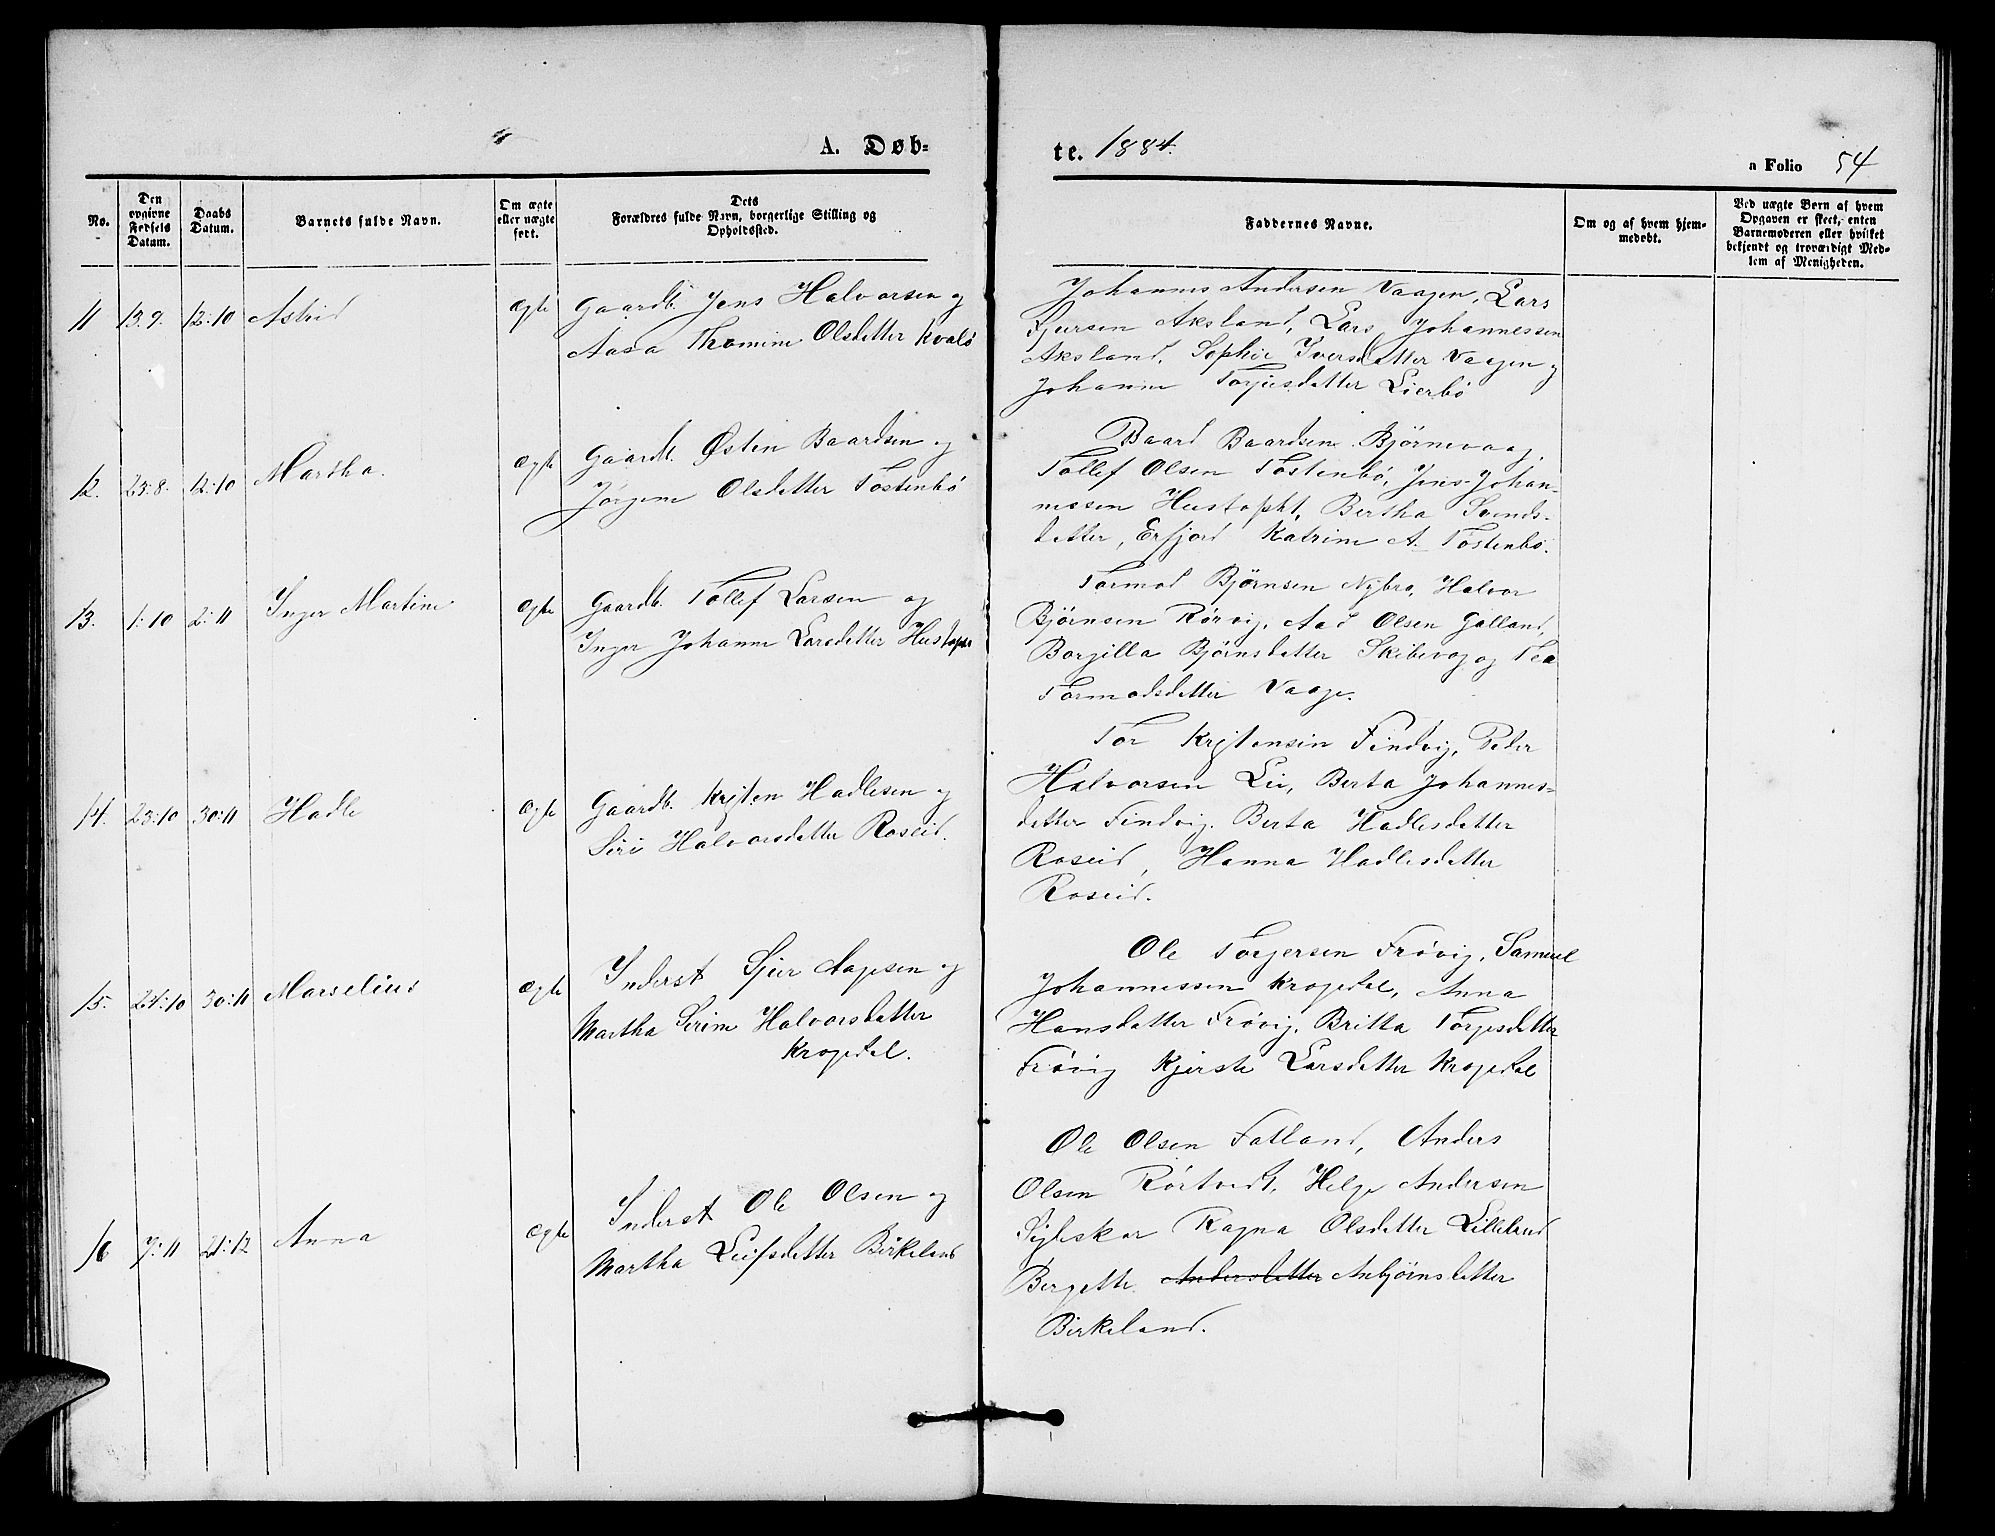 A. Døbte. 1884.
a Folio 54
No.
Den opgivne Fødsels Datum.
Daabs Datum.
Barnets fulde Navn.
Om ægte eller uægte født.
Dets Forældres fulde Navn, borgerlige Stilling og Opholdssted.
Faddernes Navne.
Om og af hvem hjemmedøbt.
Ved uægte Børn af hvem Opgaven er skeet, enten Barnemoderen eller hvilket bekjendt og troværdigt Medlem af Menigheden.
11 13.9. 12:10 Astrid Ægte Gaardb. Jens Halvorsen og
Aasa Thomine Olsdetter Kvalö
Johannes Andersen Vaagen, Lars
Aksland, Lars Johannessen
Aksland. Sophie Iversdetter Vaagen og
Johanne Torjesdetter Lierbö
12. 23:8. 12:10 Martha. Ægte Gaardb. Østen Baardsen og
Jörgine Olsdetter Töstenbö
Baard Baardsen Bjørnevaag,
Tollef Olsen Töstenbö, Jens Johan-
nessen Hustoft, Bertha Svends-
detter, Erfjord Katrine A. Töstenbö.
13. 1:10 2:11 Inger Martine Ægte Gaardb. Tollef Larsen og
Inger Johanne Larsdetter
Tormod Bjørnsen Nybro, Halvor
Bjørnsen Rörvig, Aad Olsen Galland,
Borgilla Bjørnsdetter Skibevog og Tea
Tormodsdetter Vaage.
14. 23:10 30:11 Hadle Ægte Gaardb. Kristen Hadlesen og
Siri Halvorsdetter Roseid.
Tor Findvig, Peder
Halvorsen Lei, Berta Johannes-
detter Findvig. Berta Hadlesdetter
Roseid, Hanna Hadlesdetter
Roseid.
15. 24:10 30:11 Marselius Ægte Inderst Sjur Aagesen og
Martha Serine Halvorsdetter
Krogedal.
Ole Torgersen Frövig, Samuel
Johannessen Krogedal, Anna
Hansdetter Frövig, Britta Torjesdetter
Frövig Kjerste Larsdetter Krogedal
16 7:11 21:12 Anna Ægte Inderst Ole Olsen og
Martha Leifsdetter Birkeland
Ole Olsen Fatland, Anders
Olsen Rörtvedt, Helge Andersen
Ragna Olsdetter Lilleland
Bergette Andersdetter Anbjörnsdetter
Birkeland.